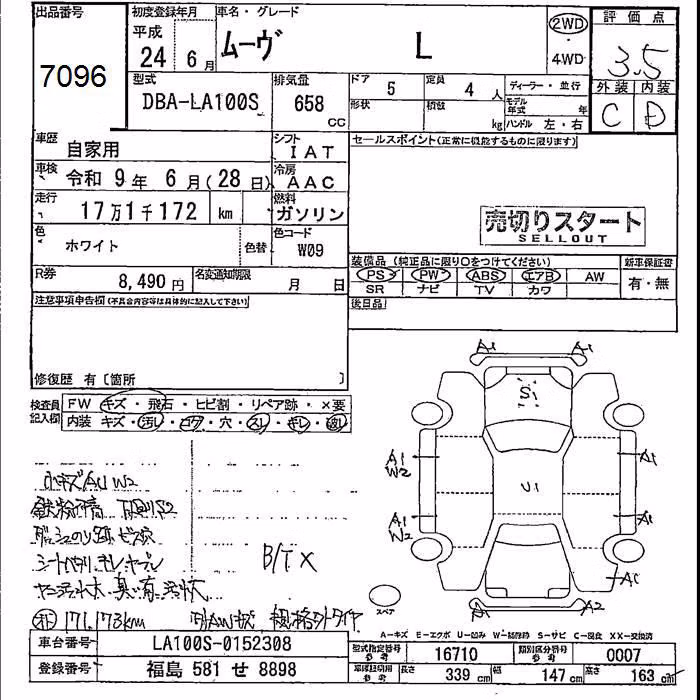 出品番号 初度登録年月 車名・グレード 評価点
7096 平成 24 6月 ムーヴ L 2WD 4WD 3.5
型式 排気量 ドア 5 定員 4人 ディーラー・並行 外装 内装
DBA-LA100S 658 CC 形状 積数 kg モデル年式 年 ハンドル 左・右 C D
車歴 自家用 シフト IAT セールスポイント(正常に機能するものに限ります)
車検 令和 9年 6月(28日) 冷房 AAC
走行 17万1千172 km 燃料 ガソリン 売切りスタート
SELLOUT
色 ホワイト 色替 色コード W09
装備品(純正品に限り○をつけてください) 新車保証書
R券 8,490円 名変通知期限 月 日 PS PW ABS エアB AW 有・無
SR ナビ TV カワ
注意事項申告欄(不具合内容等は具体的に記入して下さい) 後日品
修復歴 有〔箇所 〕
検査員記入欄 FW キズ・飛石・ヒビ割・リペア跡・×要
内装 キズ・汚レ・コゲ・穴・スレ・キレ・
A1 A1
S1
A1 W2 A1
U1
A1 W2 A1
A1
スペア A1 A2
小キズAU W2
B/T X
171,173km 規格外タイヤ
A-キズ E-エクボ U-凹み W-補修跡 S-サビ C-腐食 XX-交換済
車台番号 LA100S-0152308 型式指定番号 参考 16710 類別区分番号 参考 0007
登録番号 福島 581 せ 8898 長さ 339cm 幅 147cm 高さ 163cm